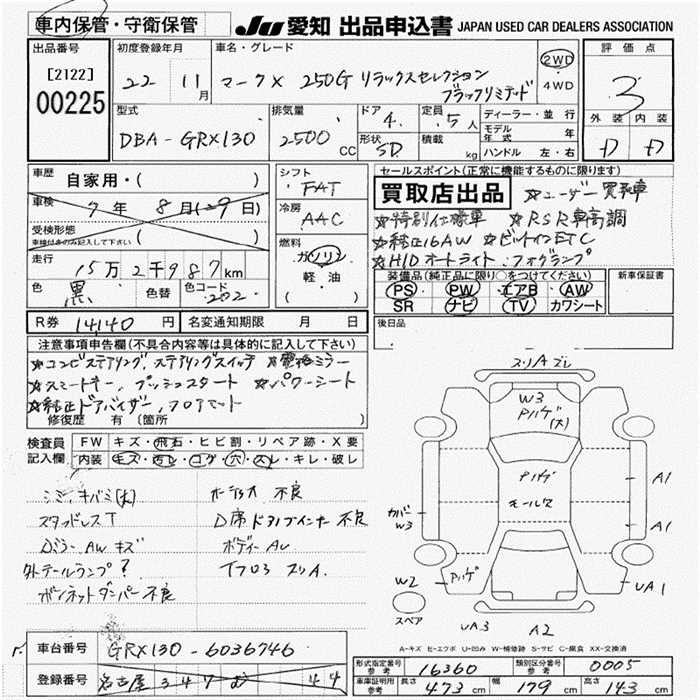 車内保管・守衛保管
JU 愛知 出品申込書 JAPAN USED CAR DEALERS ASSOCIATION
出品番号 [2122] 00225
初度登録年月 22 11月
車名・グレード マークX 250G リラックスセレクション ブラックリミテッド
2WD
4WD
評価点 3
外装 内装
型式 DBA-GRX130
排気量 2500 CC
ドア 4
形状 SD
定員 5人
積載 kg
ディーラー・並行
モデル年式 年
ハンドル 左・右
車歴 自家用・( )
車検 7年 8月(29日)
受検形態 ( )
車検付きのみ記入して下さい
走行 15万2千987km
色 黒 色替 色コード 202
シフト FAT
冷房 AAC
燃料 ガソリン
軽・油
( )
セールスポイント(正常に機能するものに限ります)
買取店出品 ☆ユーザー買取車
☆特別仕様車 ☆RSR車高調
☆純正16AW ☆ビルトインETC
☆HIDオートライト・フォグランプ
装備品(純正品に限り○をつけてください)
PS PW エアB AW
SR ナビ TV カワシート
新車保証書
後日品
R券 14140円 名変通知期限 月 日
注意事項申告欄(不具合内容等は具体的に記入して下さい)
☆コンビステアリング、ステアリングスイッチ ☆電格ミラー
☆スマートキー、プッシュスタート ☆パワーシート
☆純正ドアバイザー、フロアマット
修復歴 有(箇所 )
検査員記入欄
FW キズ・飛石・ヒビ割・リペア跡・X要
内装 キズ・汚レ・コゲ・穴・スレ・キレ・破レ
オーディオ 不良
スタッドレスT
D席ドアインナー 不良
Dミラー AWキズ
ボディーAU
外テールランプ?
ボンネットダンパー不良
スリA ズレ
W3
Pハゲ
(大)
Pハゲ
モールズ
A1
A1
カバー
W3
W2
Pハゲ
UA1
スペア
UA3
A2
A-キズ E-エクボ U-凹み W-補修跡 S-サビ C-腐食 XX-交換済
車台番号 GRX130-6036746
登録番号 名古屋 347 む 44
形式指定番号 参考 16360
類別区分番号 参考 0005
車庫証明用 参考 長さ 473cm 幅 179cm 高さ 143cm